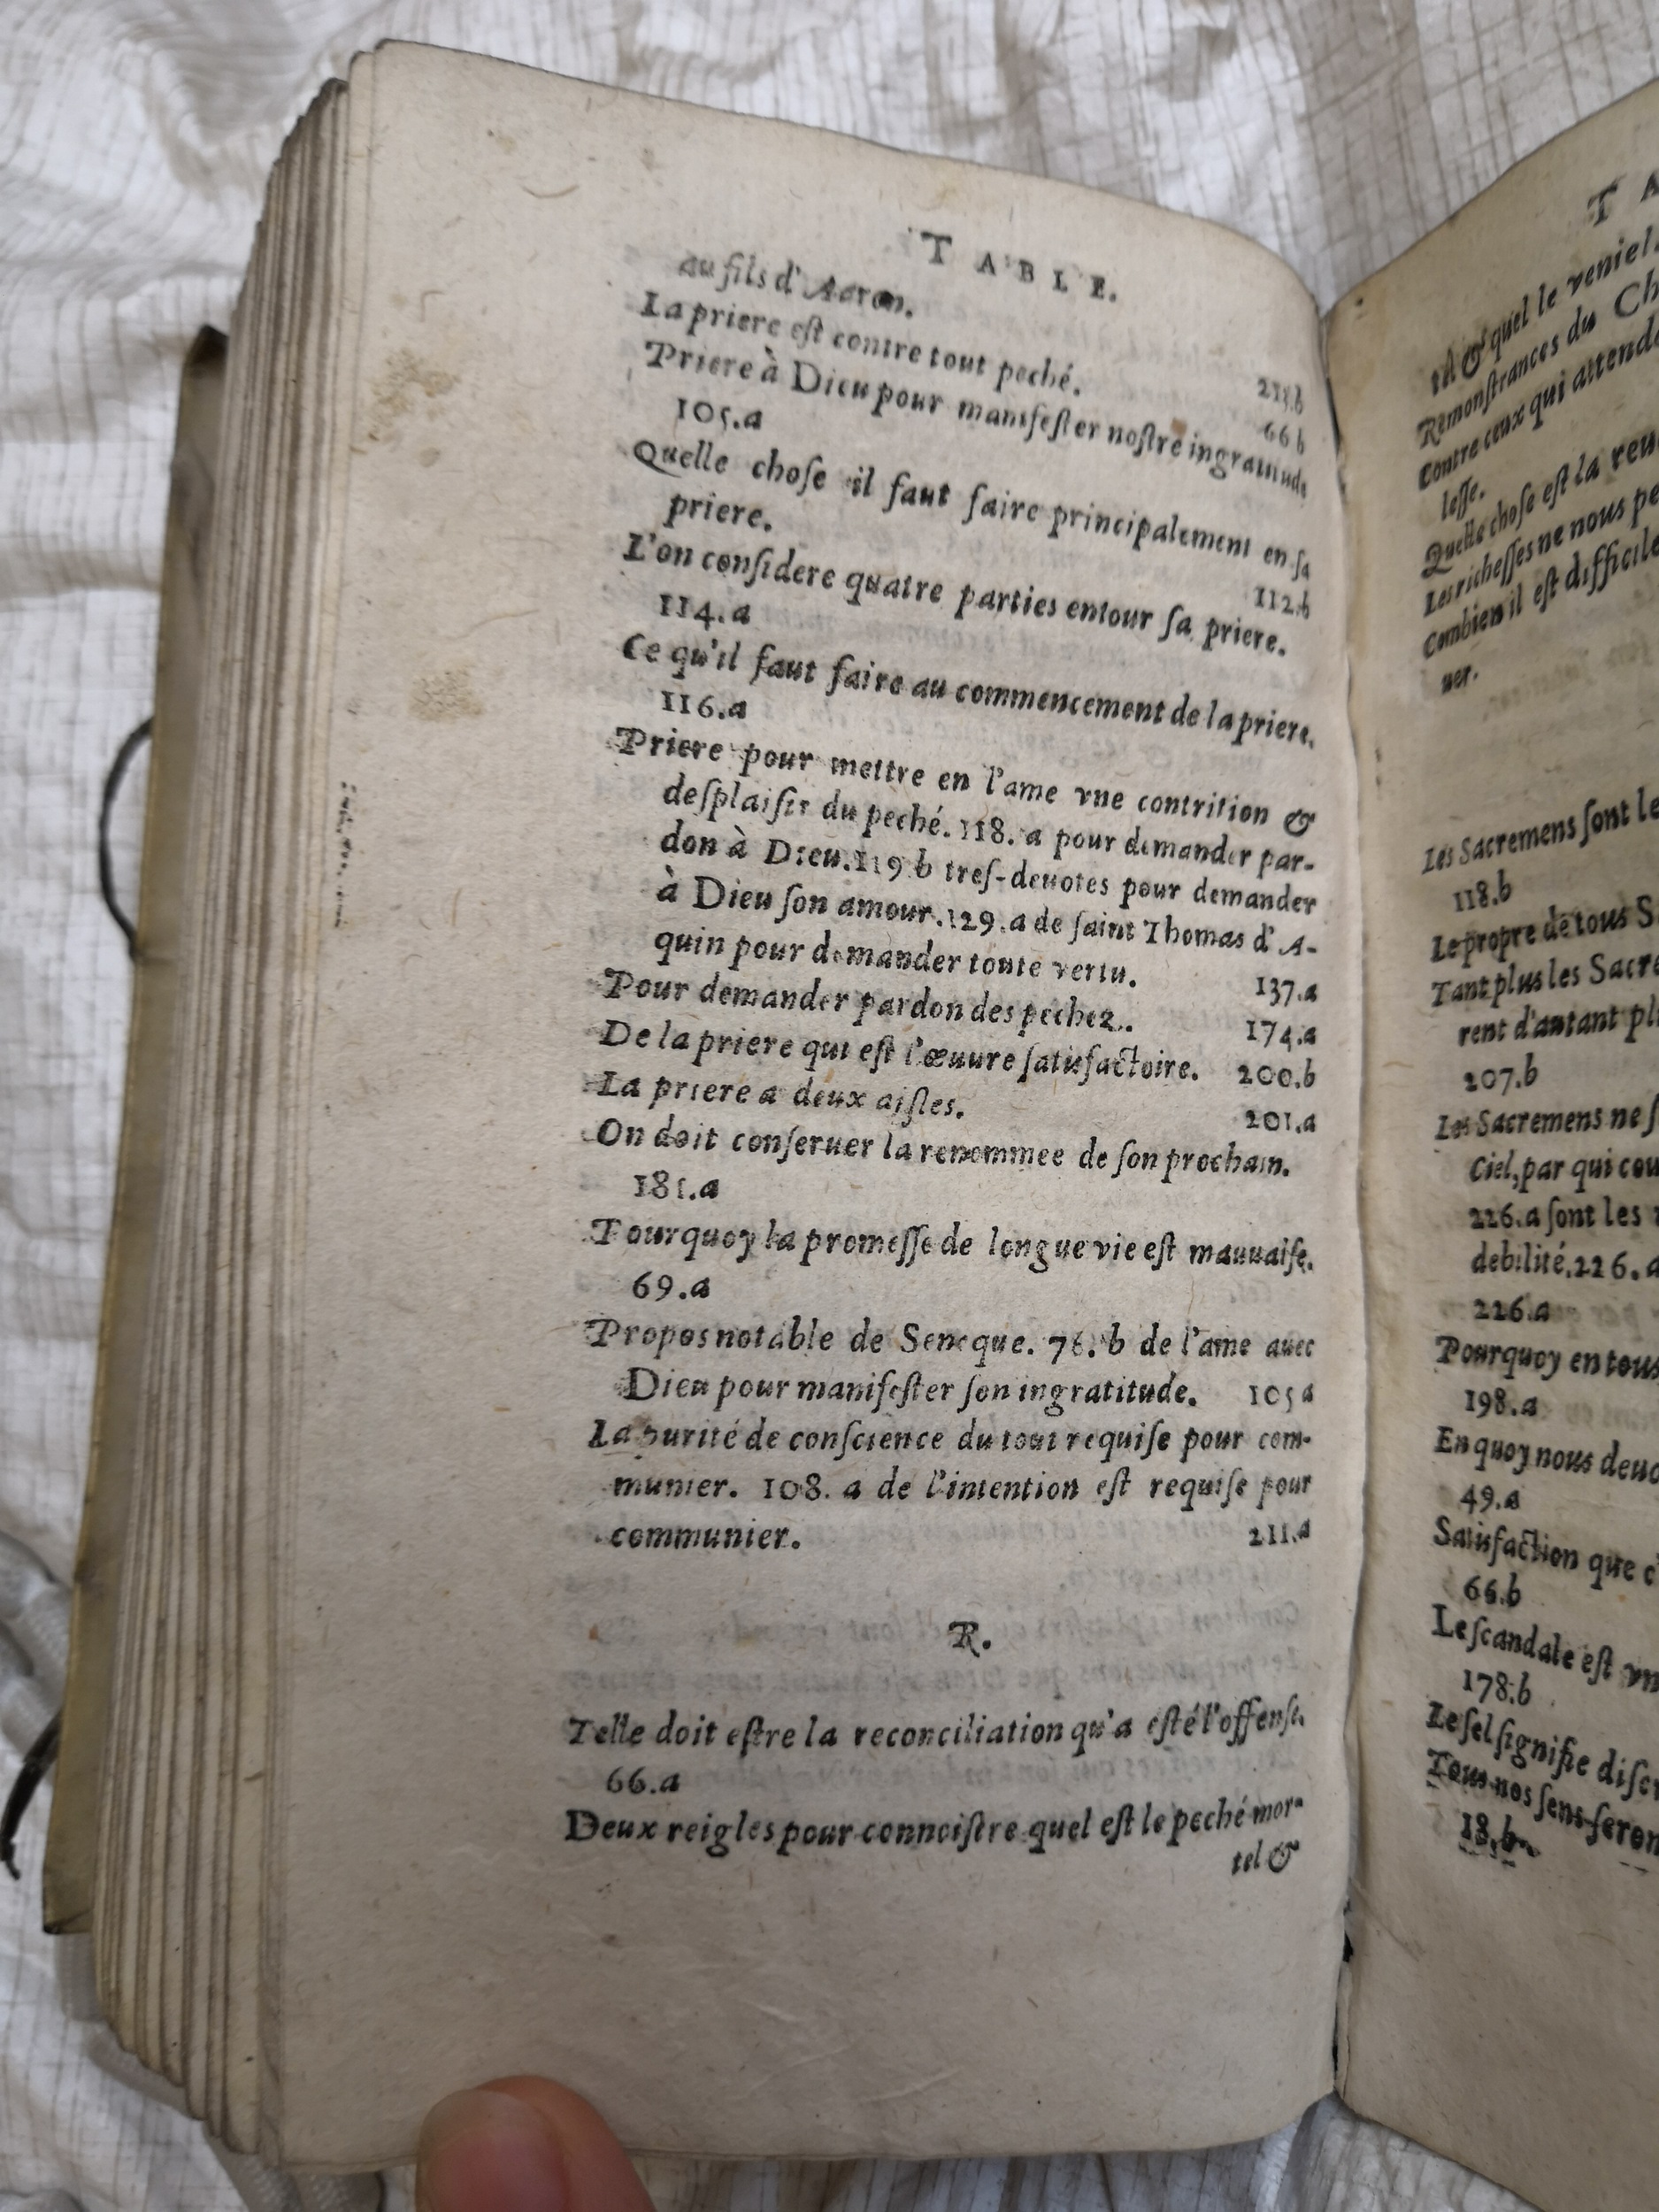 TABLE.
au fils d'Aaron.
La priere eſt contre tout peché. 66 b
Priere à Dieu pour manifeſter noſtre ingratitude
105.a
Quelle choſe il faut faire principalement en ſa
priere. 112.b
L'on conſidere quatre parties entour ſa priere.
114.a
Ce qu'il faut faire au commencement de la priere.
116.a
Priere pour mettre en l'ame vne contrition &
deſplaiſir du peché. 118. a pour demander par-
don à Dieu. 119 b treſ-deuotes pour demander
à Dieu ſon amour. 129.a de ſaint Thomas d'A-
quin pour demander toute vertu. 137.a
Pour demander pardon des pechez. 174.a
De la priere qui eſt l'œuure ſatisfactoire. 200.b
La priere a deux aiſles. 201.a
On doit conſeruer la renommee de ſon prochain.
181.a
Pourquoy la promeſſe de longue vie eſt mauuaiſe.
69.a
Propos notable de Seneque. 76. b de l'ame auec
Dieu pour manifeſter ſon ingratitude. 105 a
La purité de conſcience du tout requiſe pour com-
munier. 108. a de l'intention eſt requiſe pour
communier. 211.a
R.
Telle doit eſtre la reconciliation qu'a eſté l'offenſe.
66.a
Deux reigles pour connoiſtre quel eſt le peché mor-
tel &
TA
tel & quel le veniel.
Remonſtrances du Ch
Contre ceux qui attende
leſſe.
Quelle choſe eſt la
Les richeſſes ne nous pe
Combien il eſt difficile
uer.
Les Sacremens ſont le
118.b
Le propre de tous S
Tant plus les Sacre
rent d'autant pl
207.b
Les Sacremens ne ſ
Ciel, par qui cou
226.a ſont les
debilité. 226. a
226.a
Pourquoy en tous
198.a
En quoy nous deuo
49.a
Satisfaction que c'
66.b
Le ſcandale eſt vn
178.b
Le ſel ſignifie diſcr
Tous nos ſens ſeron
18.b